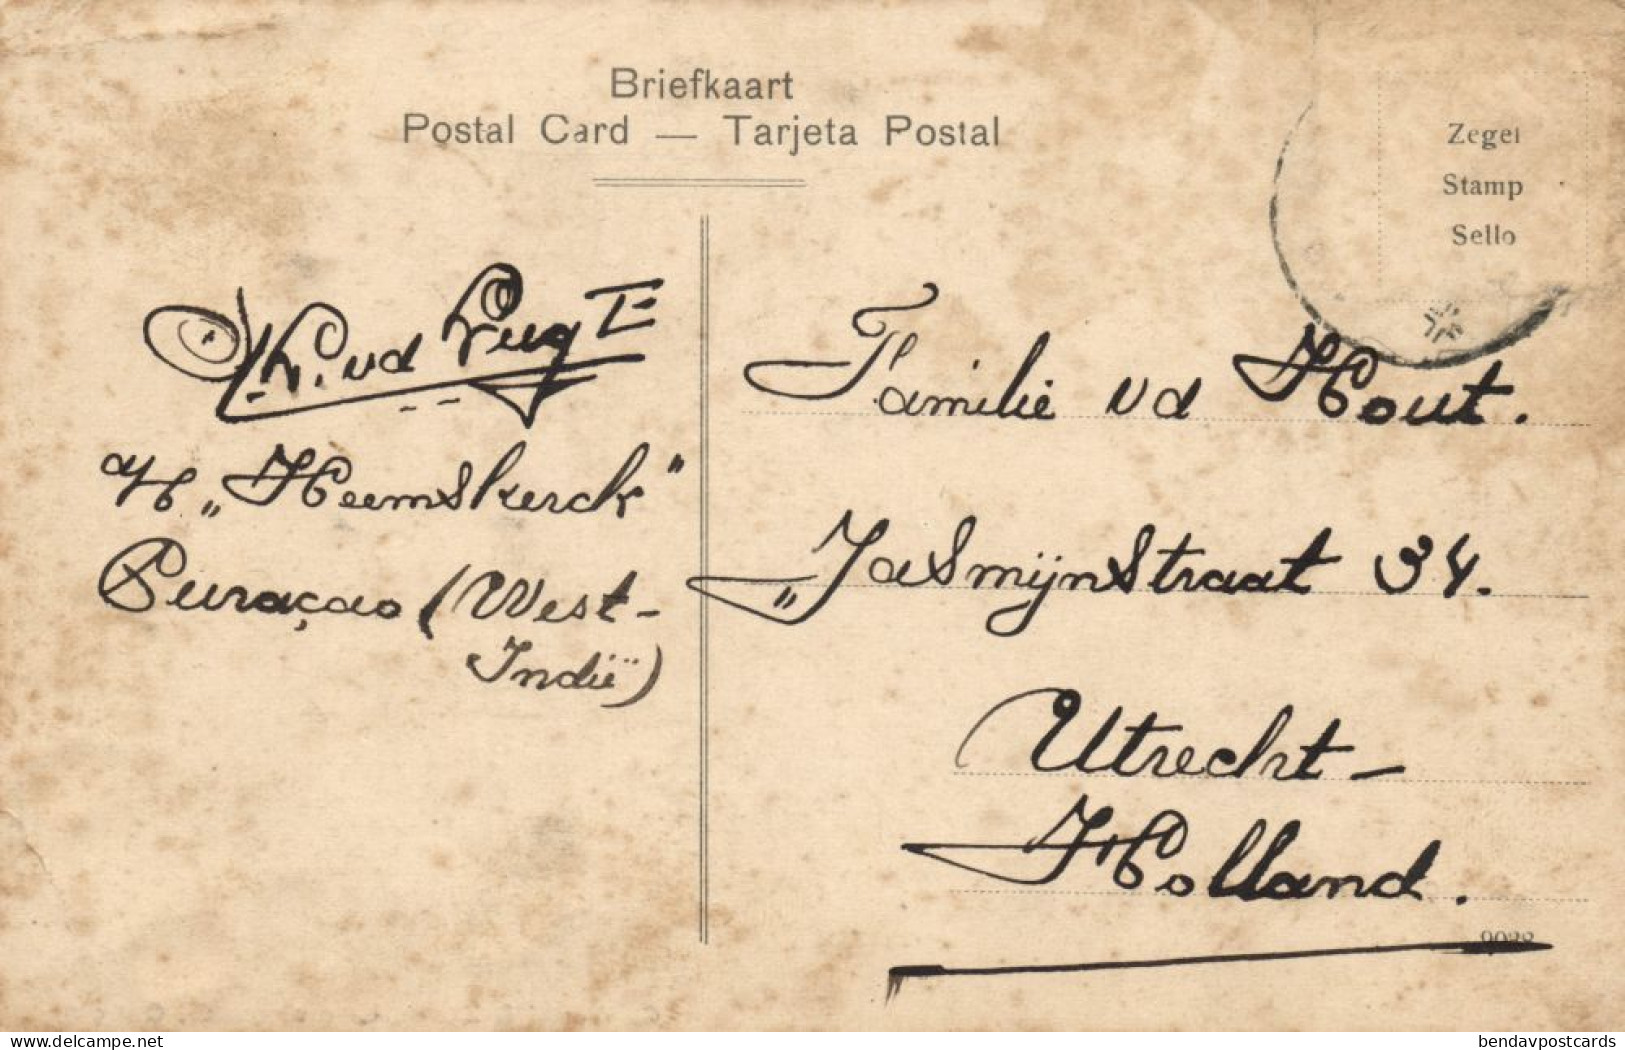 Briefkaart
Postal Card — Tarjeta Postal
Zegel
Stamp
Sello
K. vd Lug
a/b „Heemskerck"
Curaçao (West-
Indië)
Familie vd Hout.
„Jasmijnstraat 34.
Utrecht-
Holland.
delcampe.net
bendavpostcards